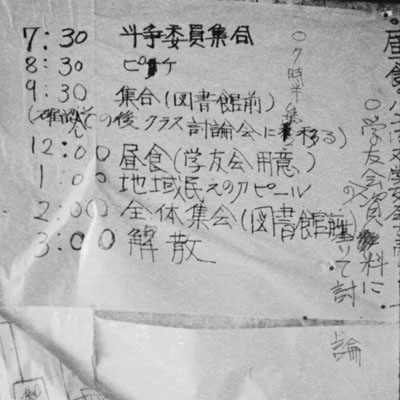 7:30 斗争委員集合
8:30 ピケ
9:30 集合(図書館前)
(確認その後クラス討論会に移る)
12:00 昼食(学友会用意)
1:00 地域民えのアピール
2:00 全体集会(図書館前)
3:00 解散
○7時半集
○学友会資料に
いて討
論